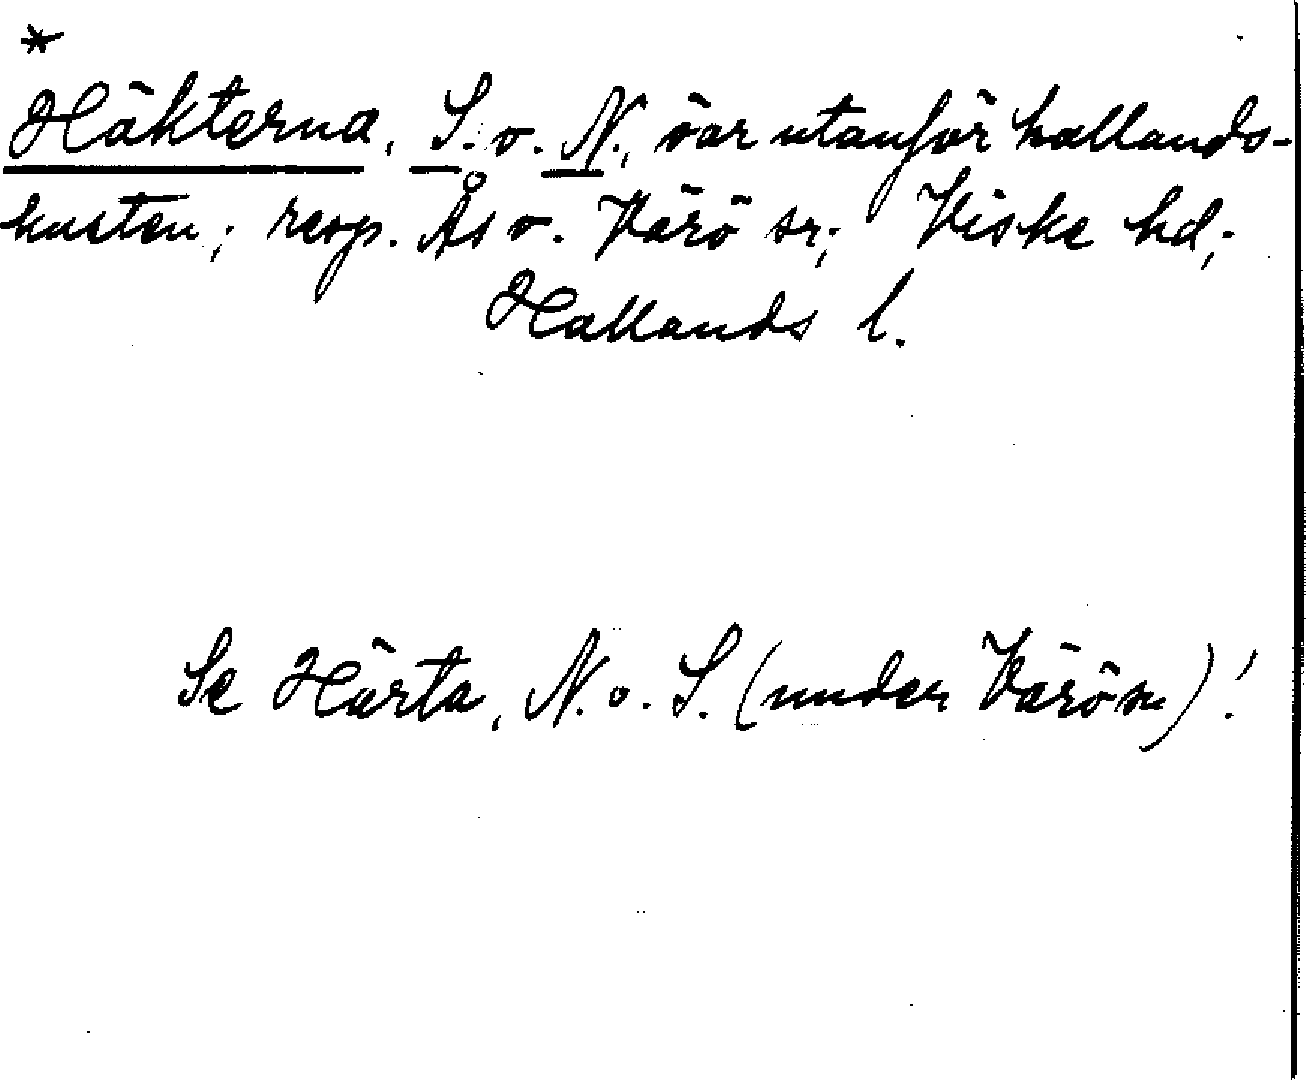 *
Häkterna, S. o. N., öar utanför hallands-
kusten; resp. Ås o. Värö sr; Viske hd;
Hallands l.
Se Härta, N. o. S. (under Värö sn)!